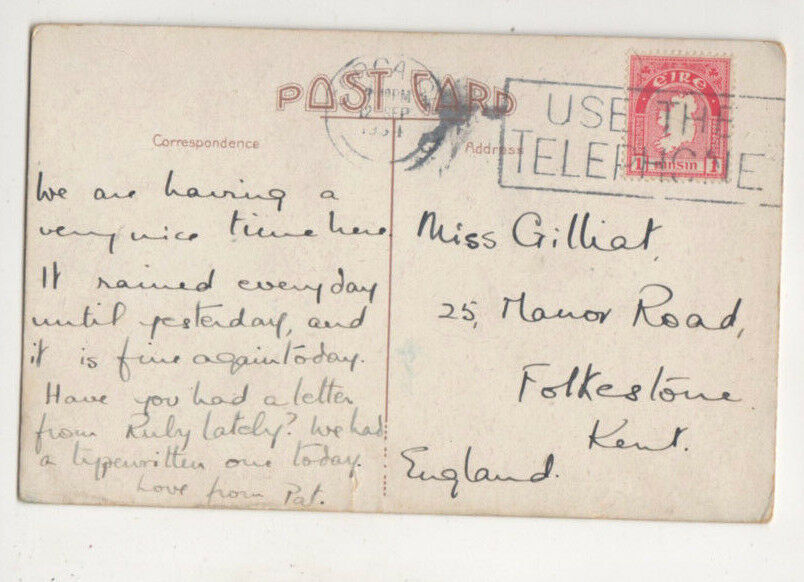 POST CARD
Correspondence
Address
PM
SEP
USE THE
TELEPHONE
EIRE
1 PINSIN 1
We are having a
very nice time here.
It rained everyday
until yesterday, and
it is fine again today.
Have you had a letter
from Ruby lately? We had
a typewritten one today.
Love from Pat.
Miss Gilliat,
25, Manor Road,
Folkestone
Kent.
England.